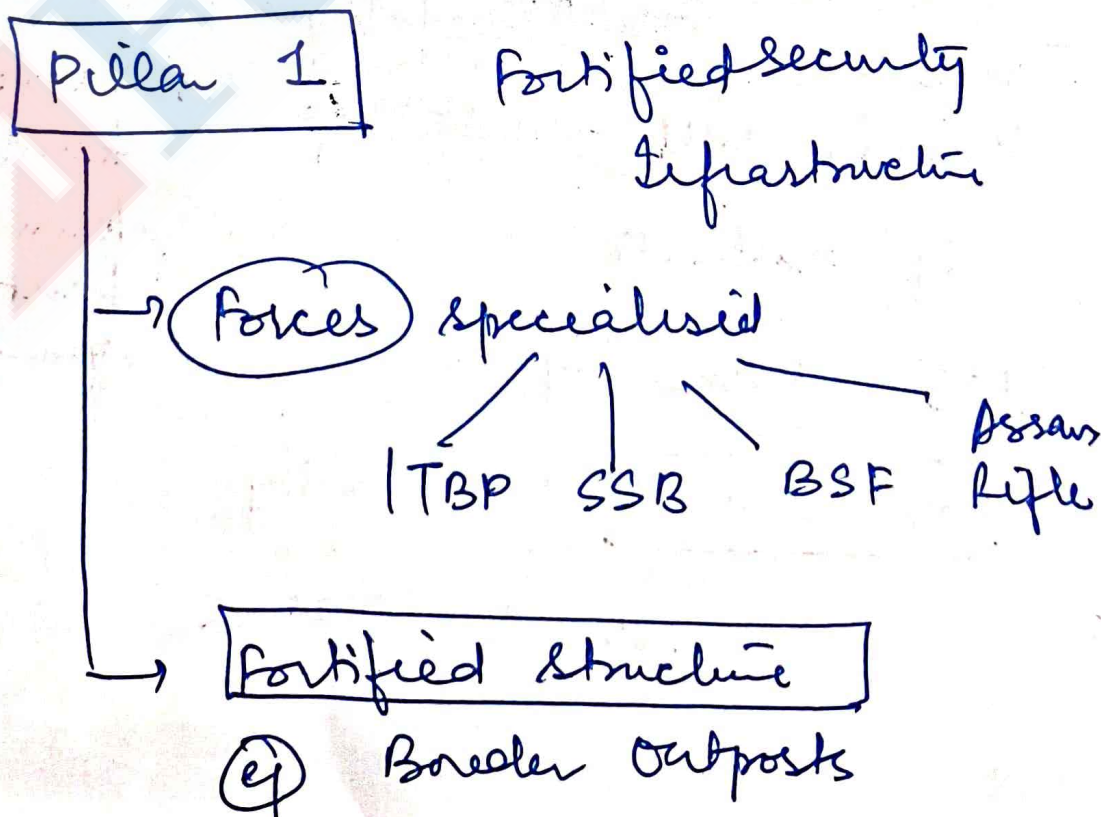 Pillar 1
Fortified Security
Infrastructure
Forces specialised
ITBP SSB BSF Assam
Rifle
Fortified Structure
eg Boreder Outposts